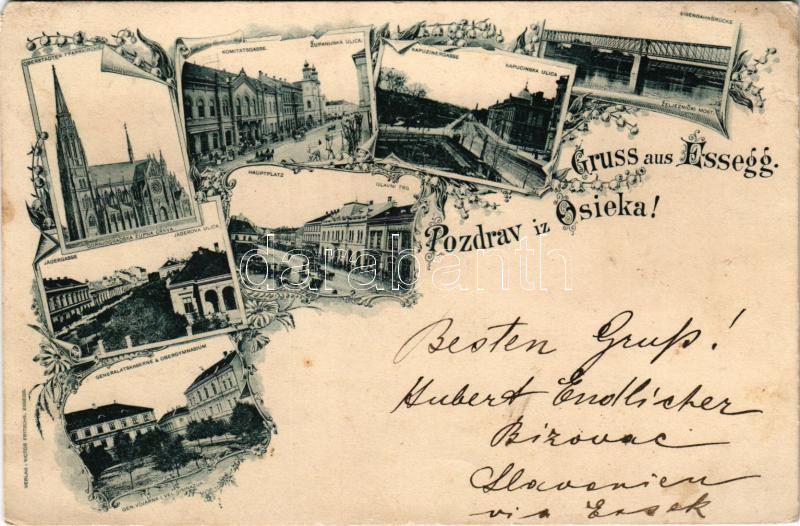 OBERSTÄDTER PFARRKIRCHE
GORNJOGRADSKA ŽUPNA CRKVA.
KOMITATSGASSE.
ŽUPANIJSKA ULICA.
KAPUZINERGASSE
KAPUCINSKA ULICA
EISENBAHNBRÜCKE
ŽELJEZNIČKI MOST.
Gruss aus Essegg.
Pozdrav iz Osieka!
HAUPTPLATZ
GLAVNI TRG.
JÄGERGASSE
JÄGEROVA ULICA
GENERALATSKASERNE & OBERGYMNASIUM
GEN. VOJARNA I VEL. GIMNAZIJA
VERLAG: VICTOR FRITSCHE, ESSEGG.
darabanth
Besten Gruß!
Hubert Endlicher
Bizovac
Slavonien
via Essek